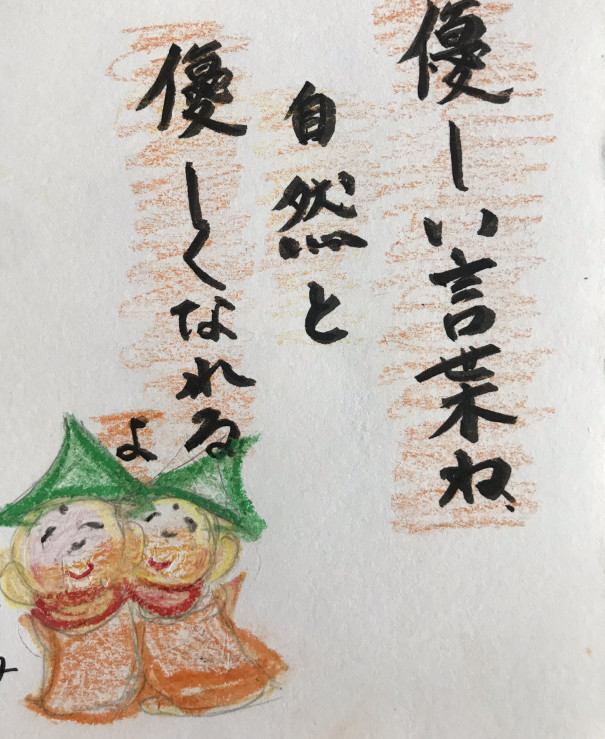 優しい言葉ね、
自然と
優しくなれる
よ